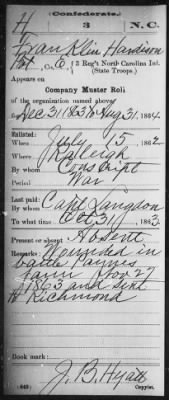 (Confederate.)
H 3 N.C.
Franklin Hardison
Pvt, Co. E, 3 Reg't North Carolina Inf.
(State Troops.)
Appears on
Company Muster Roll
of the organization named above
for Dec 31/63 to Aug 31, 1864.
Enlisted:
When July 15, 1862
Where Raleigh
By whom Conscript
Period War
Last paid:
By whom Capt. Langdon
To what time Oct 31, 1863
Present or absent Absent
Remarks: Wounded in
battle Paynes
farm Nov 27
1863 and sent
to Richmond
Book mark:
J. B. Hyatt
(642) Copyist.